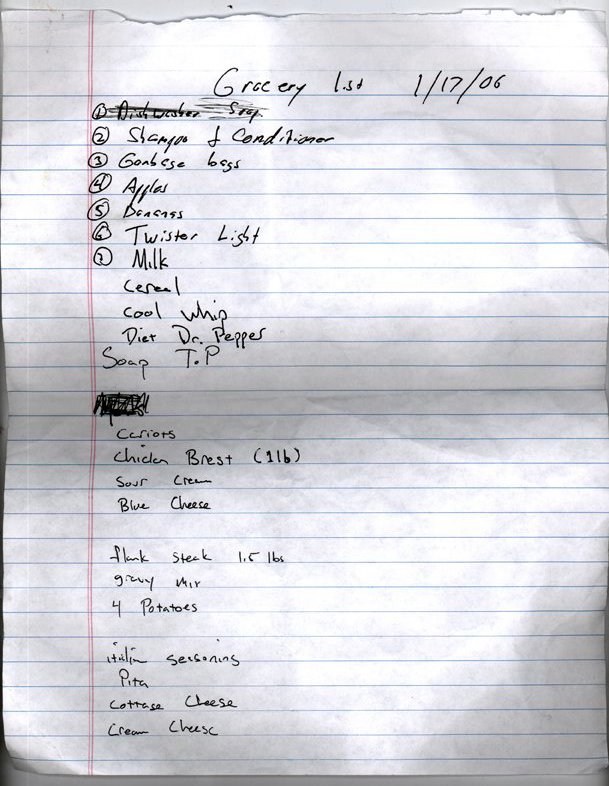 Grocery list 1/17/06
① Dishwasher Soap
② Shampoo & Conditioner
③ Garbage bags
④ Apples
⑤ Bananas
⑥ Twister Light
⑦ Milk
Cereal
Cool Whip
Diet Dr. Pepper
Soap T.P
Carrots
Chicken Brest (1lb)
Sour Cream
Blue Cheese
flank steak 1.5 lbs
gravy mix
4 Potatoes
italian seasoning
Pita
Cottage Cheese
Cream Cheese